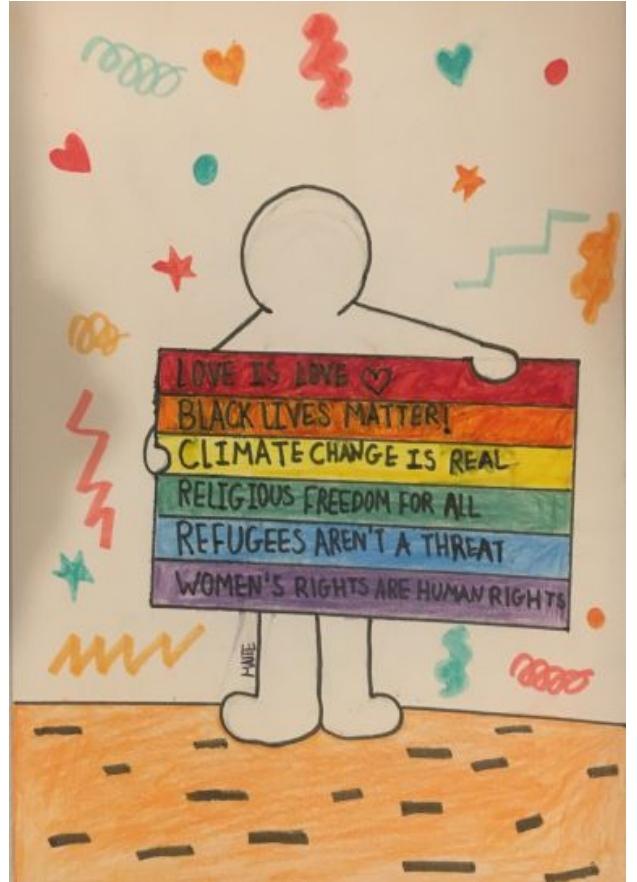 LOVE IS LOVE ♡
BLACK LIVES MATTER!
CLIMATE CHANGE IS REAL
RELIGIOUS FREEDOM FOR ALL
REFUGEES AREN'T A THREAT
WOMEN'S RIGHTS ARE HUMAN RIGHTS